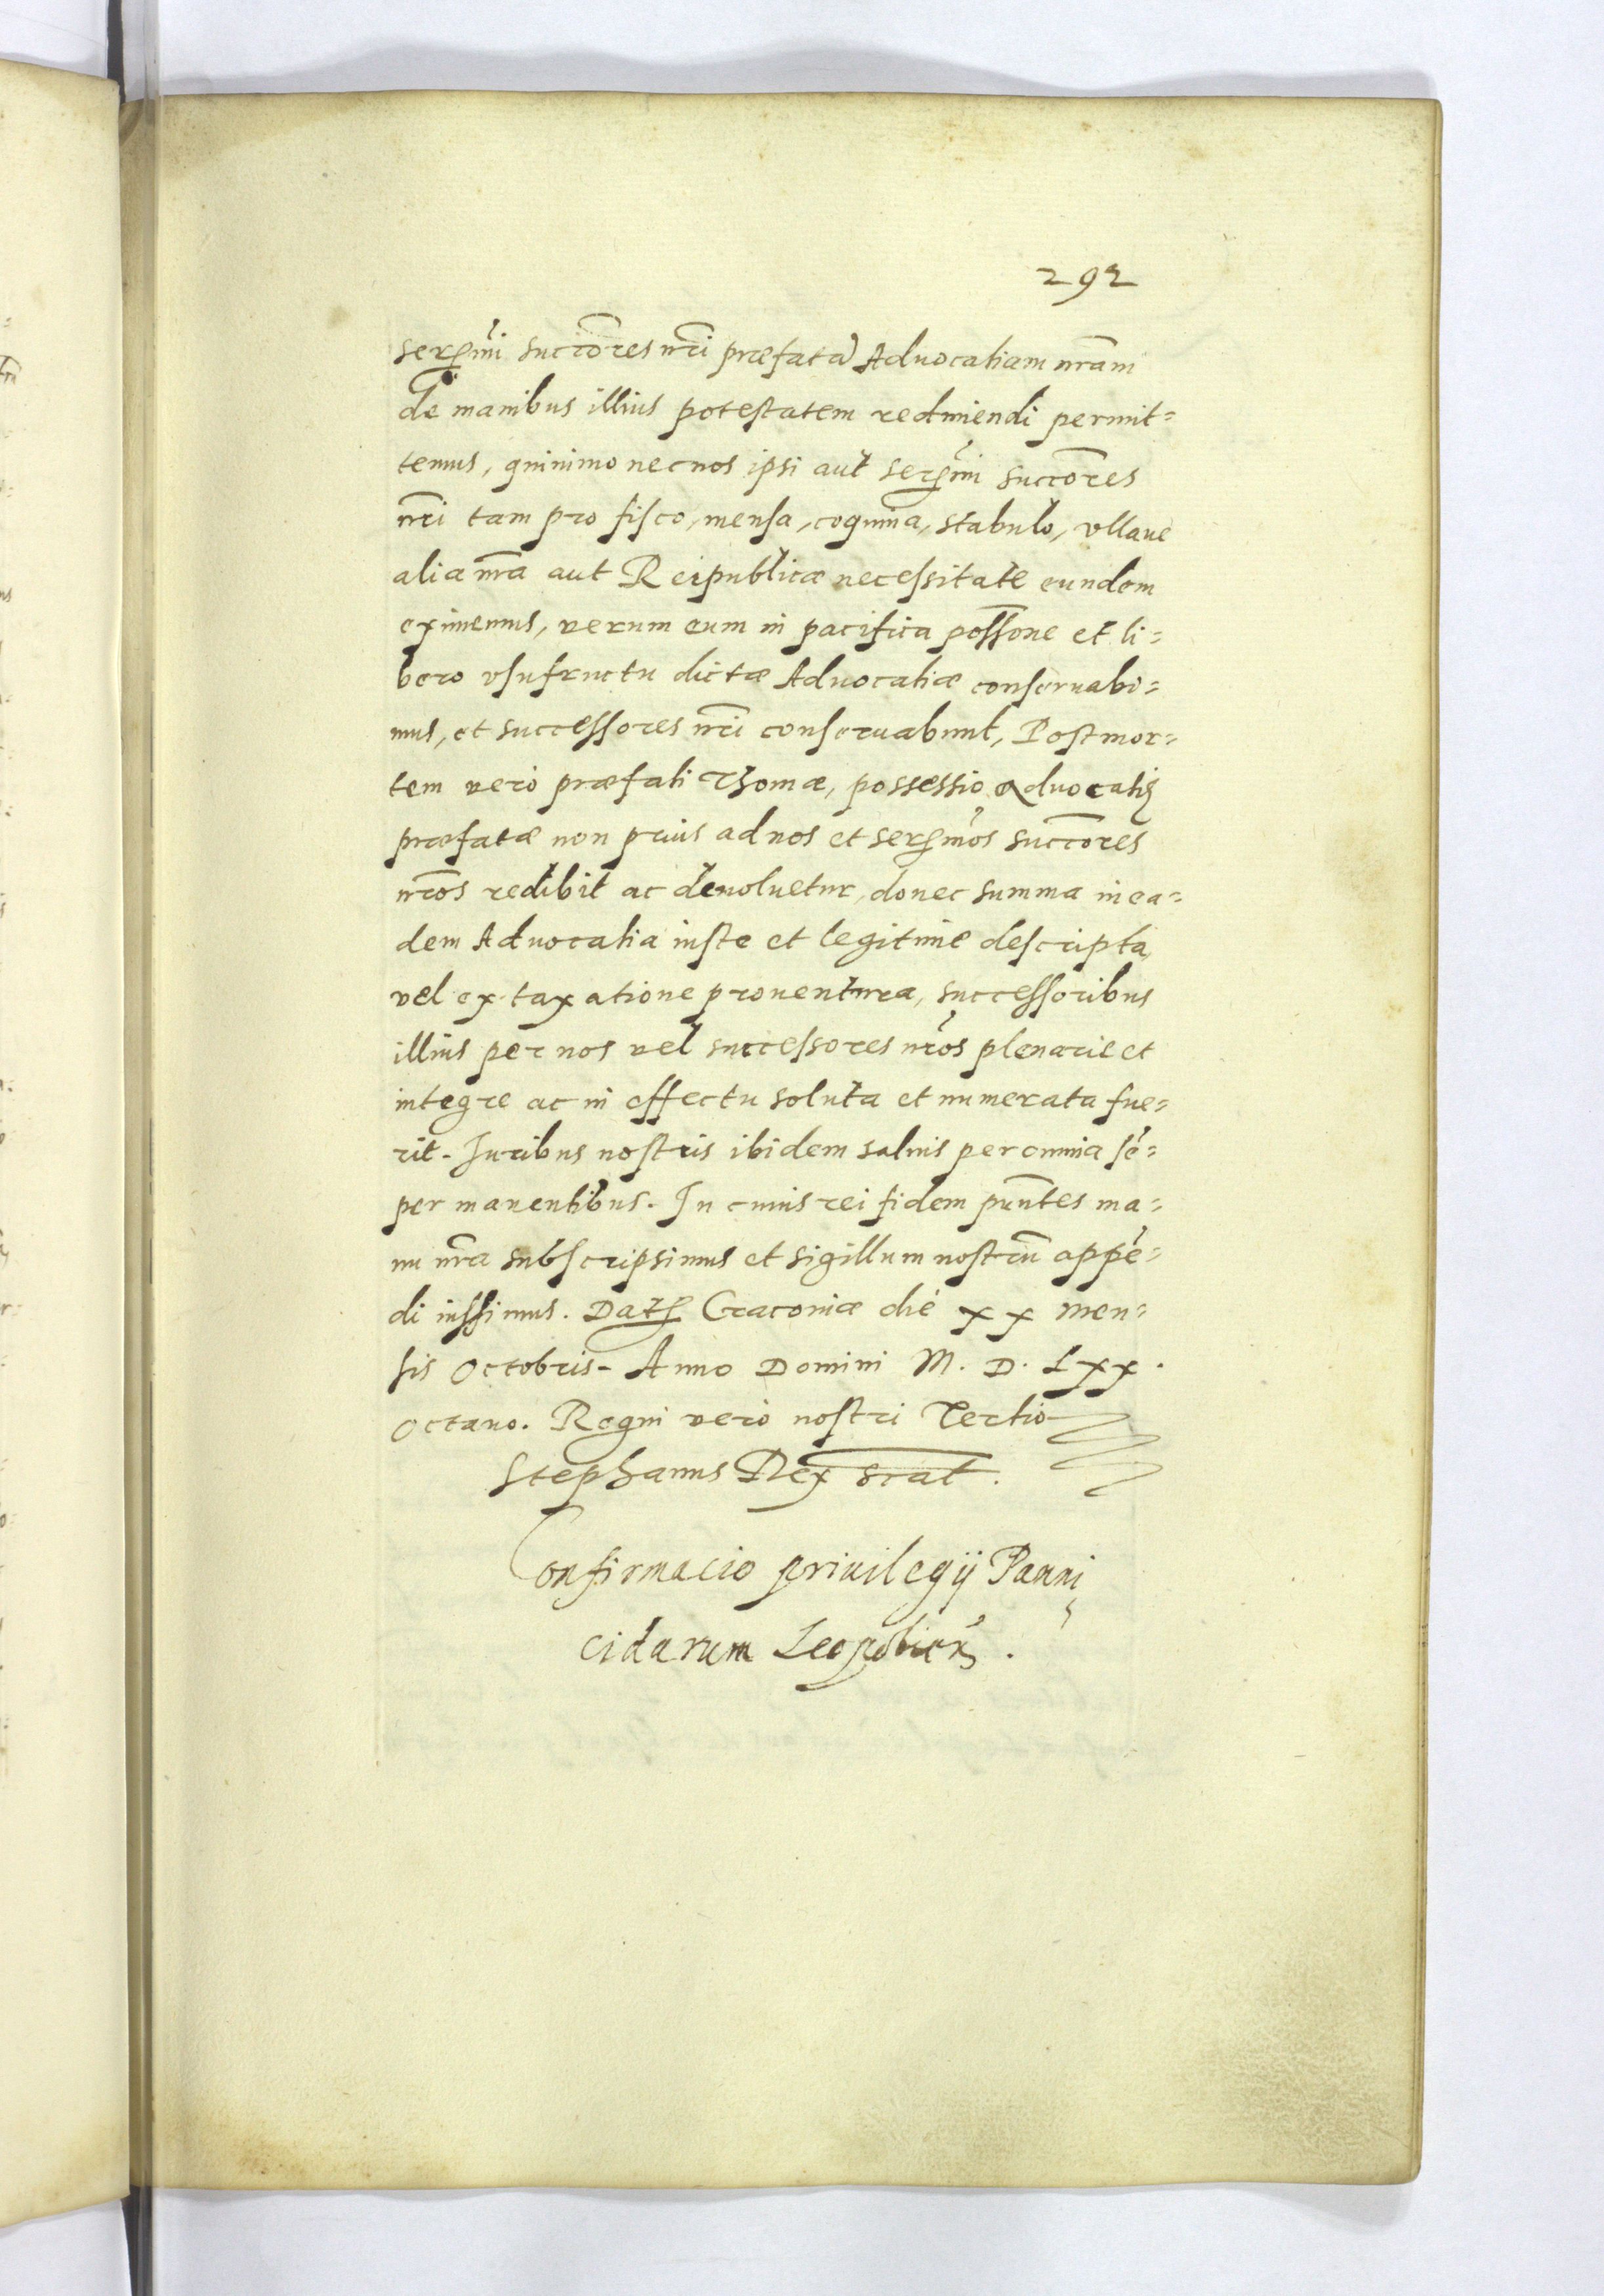 292
sermi succōres nr̄i præfatā Aduocatiam nr̄am
de manibus illius potestatem redimendi permit=
temus, quinimo nec nos ipsi aut sermi succōres
nr̄i tam pro fisco, mensa, coquina, stabulo, vllaue
alia nr̄a aut Reipublicæ necessitate eundem
eximemus, verum eum in pacifica possōne et li=
bero vsufructu dictæ Aduocatiæ conseruabi=
mus, et successores nr̄i conseruabunt, Post mor=
tem vero præfati Thomæ, possessio Aduocatię
præfatæ non prius ad nos et sermos succōres
nr̄os redibit ac deuoluetur, donec summa in ea=
dem Aduocatia iuste et legitime descripta,
vel ex taxatione prouentura, successoribus
illius per nos vel successores nr̄os plenarie et
integre ac in effectu soluta et numerata fue=
rit. Iuribus nostris ibidem saluis per omnia sē=
per manentibus. In cuius rei fidem pn̄tes ma=
nu nr̄a subscripsimus et sigillum nostrū appē=
di iussimus. Dat Cracouiæ die xx men=
sis Octobris. Anno Domini M. D. Lxx.
Octauo. Regni vero nostri Tertio
Stephanus Rex scat.
Confirmacio priuilegij Panni
cidarum Leopolien̄.